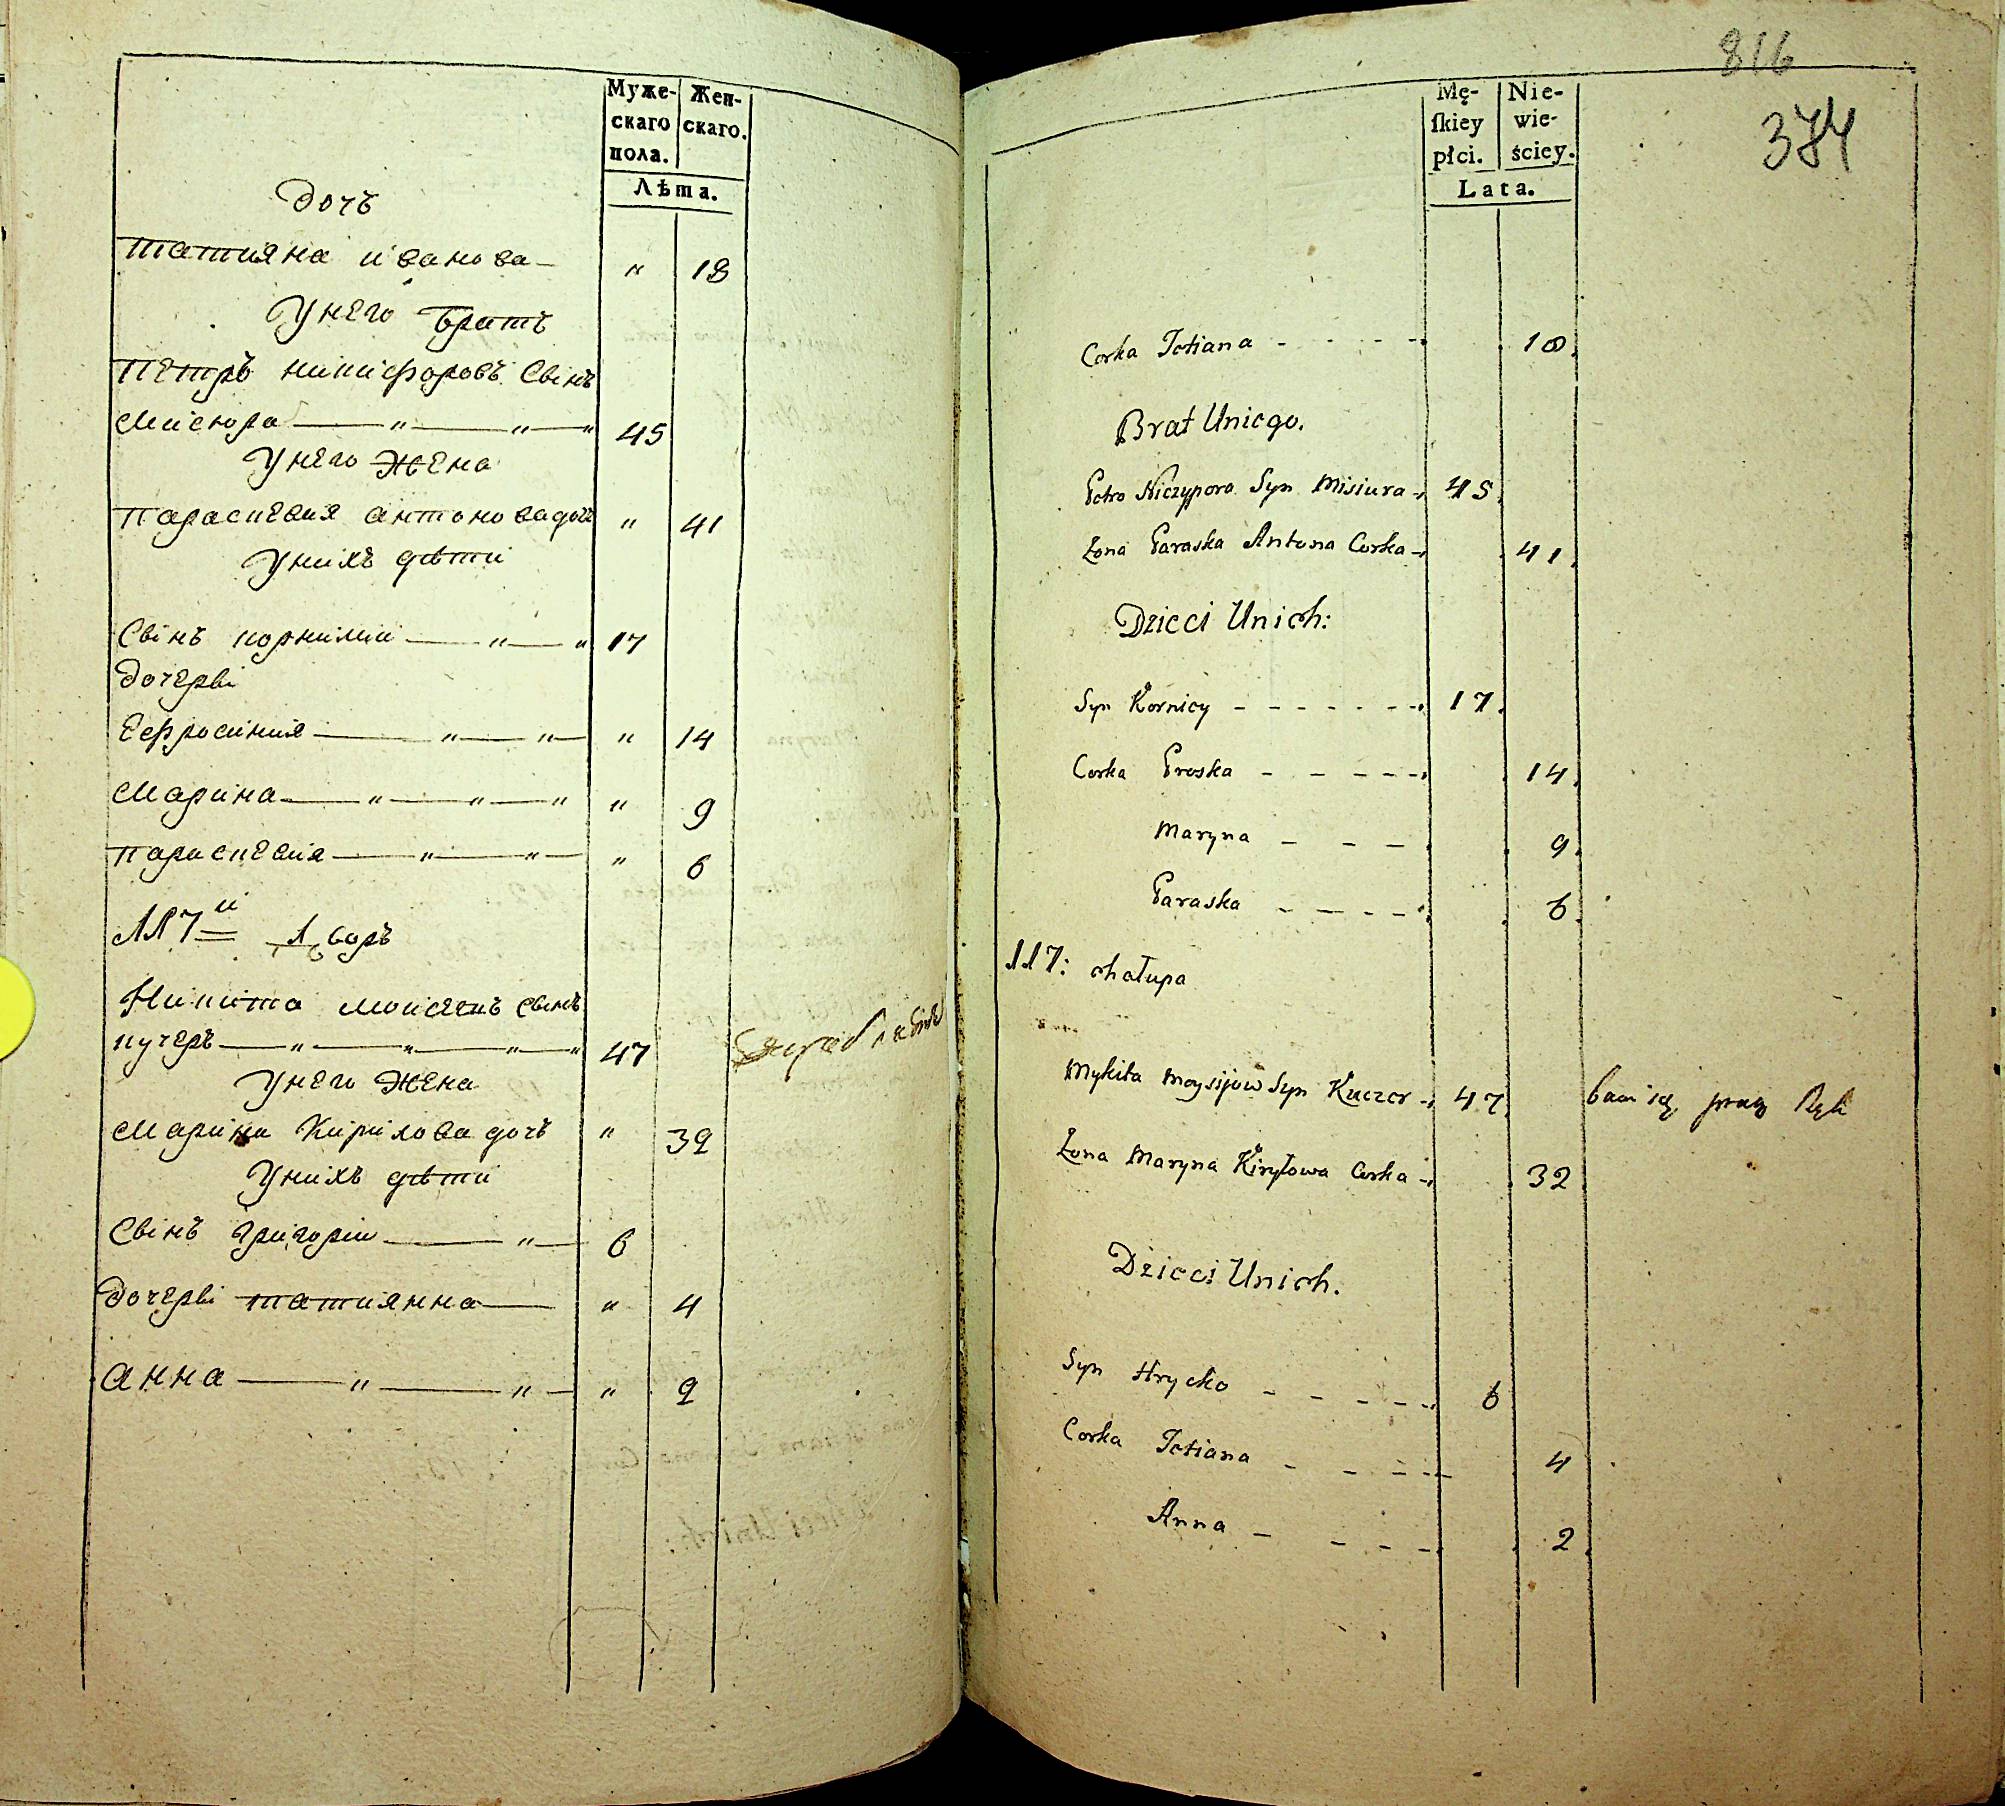 Муже- Жен-
скаго скаго.
пола.
Лѣта.
Дочъ
татияна иванова — " 18
Унего братъ
Петръ никифоровъ Свінъ
Мисюра — " — " — " 45
Унего Жена
Параскевия антоновадочъ " 41
Унихъ дѣти
Свінъ корнилий — " — " 17
Дочерві
Ефросиния — " — " — " 14
Марина — " — " — " " 9
параскевия — " — " — " 6
117й Дворъ
Никита моисеивъ свінъ
кучеръ — " — " — " — " 47
Унего Жена
Марина Кирилова дочъ " 32
Унихъ дѣти
Свінъ григорий — " — 6
Дочерві татиянна — " 4
анна — " — " — " 2
816
374
Mę- Nie-
ſkiey wie-
płci. ściey.
Lata.
Corka Tetiana - - - - - 18.
Brat Uniego.
Petro Niczypora Syn Misiura - 45.
Żona Paraska Antona Corka - 41.
Dzieci Unich:
Syn Korniey - - - - - - - 17.
Corka Proska - - - - - 14.
Maryna - - - 9.
Paraska - - - - 6.
117: chałupa
Mykita Moysijow Syn Kuczer - 47.
Żona Maryna Kiryłowa Corka - 32
Dzieci Unich.
Syn Hrycko - - - - - 6
Corka Tetiana - - - - - 4
Anna - - - - 2